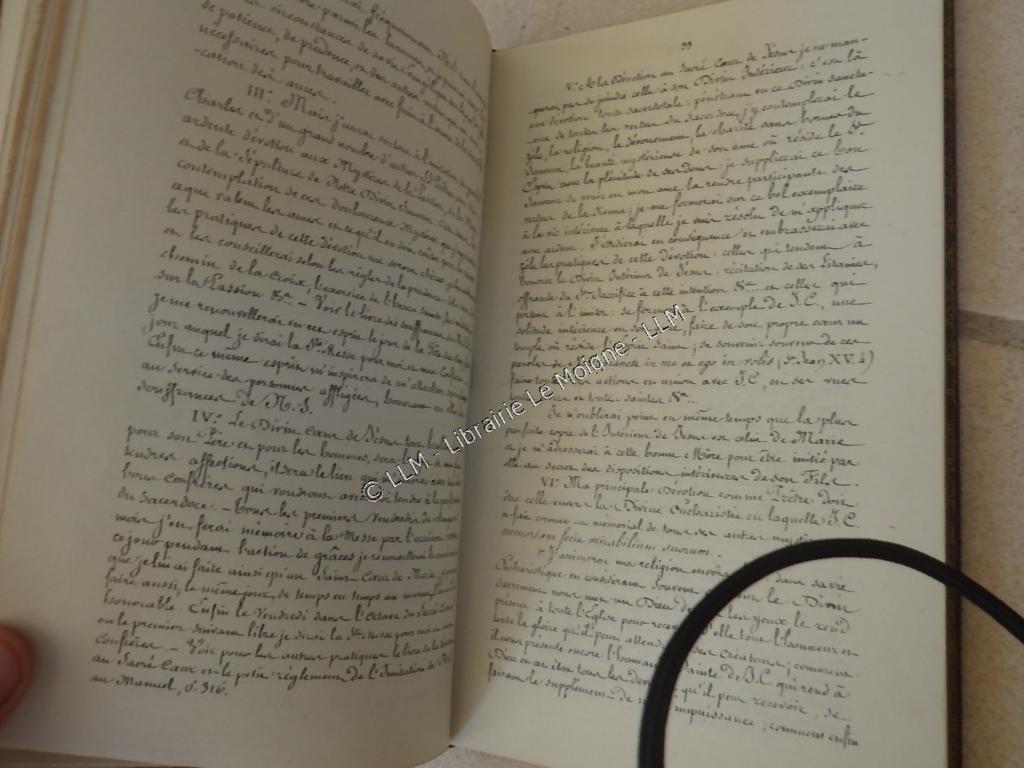 de patience, de prudence, et des autres
nécessaires pour travailler avec fruit à la
-cation des âmes.
III.° Mais j'aurai surtout à l'imitation de
Charles et d'un grand nombre d'autres
ardente dévotion aux Mystères de la Passion, de la
et de la Sépulture de Notre Divin Sauveur.
contemplation de ces douloureux Mystères
ce que valent les âmes et ce qu'il en a coûté pour les
les pratiques de cette dévotion me seront chères,
et les conseillerai selon les règles de la prudence: telles
chemin de la Croix, l'exercice de l'heure sainte, la
sur la Passion &c. – Voir le livre des souffrances
je me renouvellerai en cet esprit le jour de la Fête
jour auquel je dirai la Ste Messe pour moi et mes Confrères
Enfin ce même esprit m'inspirera de m'attacher
au service des personnes affligées, honorant en elles
souffrances de N. S.
IV.° Le Divin Cœur de Jésus tout brûlant
pour son Père et pour les hommes, sera
tendres affections, il sera le lien
bons Confrères qui voudront avec
du sacerdoce. – Tous les premiers Vendredis de chaque
mois j'en ferai mémoire à la Messe par l'oraison
ce jour pendant l'action de grâces je renouvellerai la
que je lui ai faite ainsi qu'au Saint Cœur de Marie
faire aussi, le même jour, de temps en temps au moins
honorable. Enfin le Vendredi dans l'Octave du Sacré Cœur
ou le premier suivant libre je dirai la Ste Messe pour moi et mes
Confrères. – Voir pour les autres pratiques le livre de la
au Sacré Cœur et le petit règlement de l'Imitation de
au Manuel, p. 316.
V.° A la Dévotion au Sacré Cœur de Jésus je ne man-
querai pas de joindre celle à son Divin Intérieur; c'est là
une dévotion toute sacerdotale: pénétrant en ce Divin sanctu-
aire de toutes les vertus du sacerdoce, j'y contemplerai le
zèle, la religion, le dévouement, la charité sans bornes du
Sauveur, la beauté mystérieuse de son âme où réside le St
Esprit avec la plénitude de ses dons; je supplierai ce bon
Sauveur de vivre en mon âme, la rendre participante des
vertus de la sienne; je me formerai sur ce bel exemplaire
à la vie intérieure à laquelle je suis résolu de m'appliquer
avec ardeur. J'étudierai en conséquence et embrasserai avec
zèle les pratiques de cette dévotion: celles qui tendent à
honorer le Divin Intérieur de Jésus: récitation de ses Litanies,
offrande du St Sacrifice à cette intention &c. et celles qui
portent à l'imiter: se former à l'exemple de J.C. une
solitude intérieure et faire de son propre cœur un
temple où réside l'Esprit Saint; se souvenir souvent de ces
paroles manete in me et ego in vobis (St Jean XV. 4)
faire toutes actions en union avec J.C, en ses vues
en toute sainteté &c...
Je n'oublirai point en même temps que la plus
parfaite copie de l'Intérieur de Jésus est celui de Marie
et je m'adresserai à cette bonne Mère pour être initié par
elle au secret des dispositions intérieures de son Fils.
VI.° Ma principale Dévotion comme Prêtre doit
être celle envers la Divine Eucharistie en laquelle J.C.
a fait comme un mémorial de tous ses autres mystères
memoriam fecit mirabilium suorum.
1° J'animerai ma religion envers dans sa vie
Eucharistique en considérant souvent le Divin
Sacrement nous met un Dieu devant les yeux, le rend
présent à toute l'Eglise pour recevoir d'elle tout l'honneur et
toute la gloire qu'il peut attendre des Créatures; comment
il rend présente encore l'humanité Sainte de J.C qui rend à
Dieu en cet état tous les devoirs qu'il peut recevoir, se
faisant le supplément de notre impuissance; comment enfin
© LLM - Librairie Le Moigne - LLM